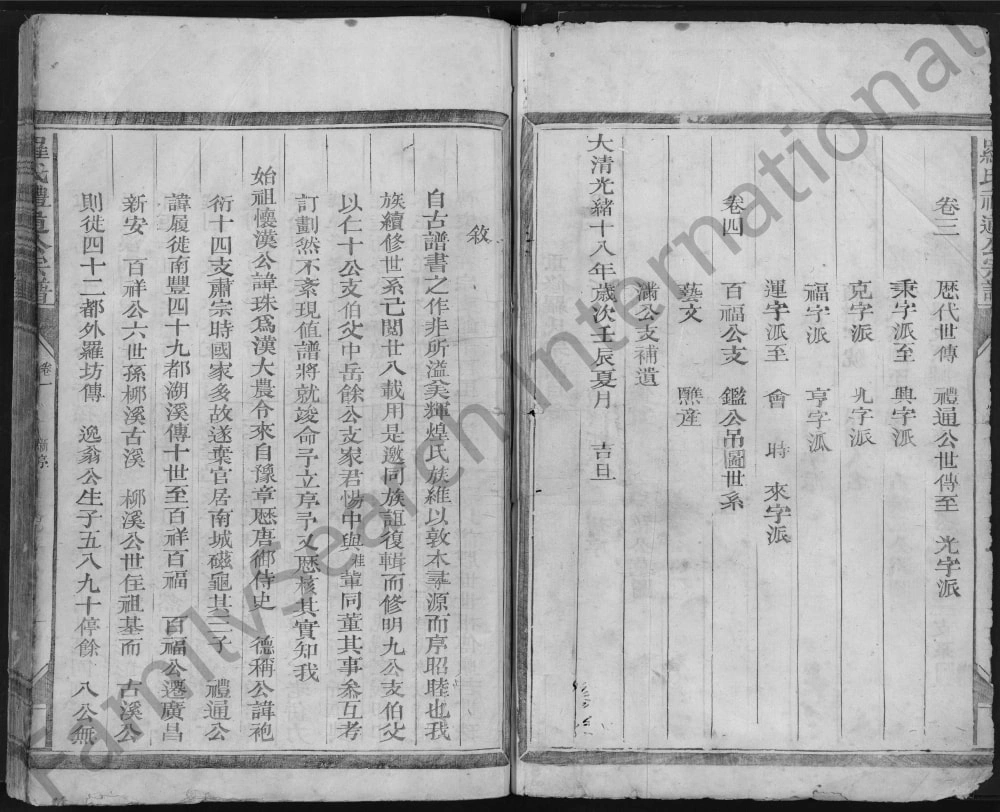 卷三　歷代世傳　禮通公世傳至　光字派
秉字派至　興字派
克字派　九字派
福字派　亨字派
運字派至　會　時　來字派
卷四　百福公支　鑑公吊圖世系
藝文　[醮]產
滿公支補遺
大清光緒十八年歲次壬辰夏月　吉旦
羅氏禮通公宗譜
敘
自古譜書之作非所溢美輝煌氏族維以敦本尋源而序昭睦也我
族續修世系已閱廿八載用是邀同族誼復輯而修明九公支伯父
以仁十公支伯父中岳餘公支家君惕中與雄輩同董其事叅互考
訂劃然不紊現值譜將就竣命予立序予又歷核其實知我
始祖懷漢公諱珠為漢大農令來自豫章歷唐御侍史　德稱公諱袍
衍十四支肅宗時國家多故遂棄官居南城磁龜其三子　禮通公
諱履徙南豐四十九都湖溪傳十世至百祥百福　百福公遷廣昌
新安　百祥公六世孫柳溪古溪　柳溪公世住祖基而　古溪公
則徙四十二都外羅坊傳　逸翁公生子五八九十停餘　八公無
羅氏禮通公宗譜　卷一　新序
FamilySearch International